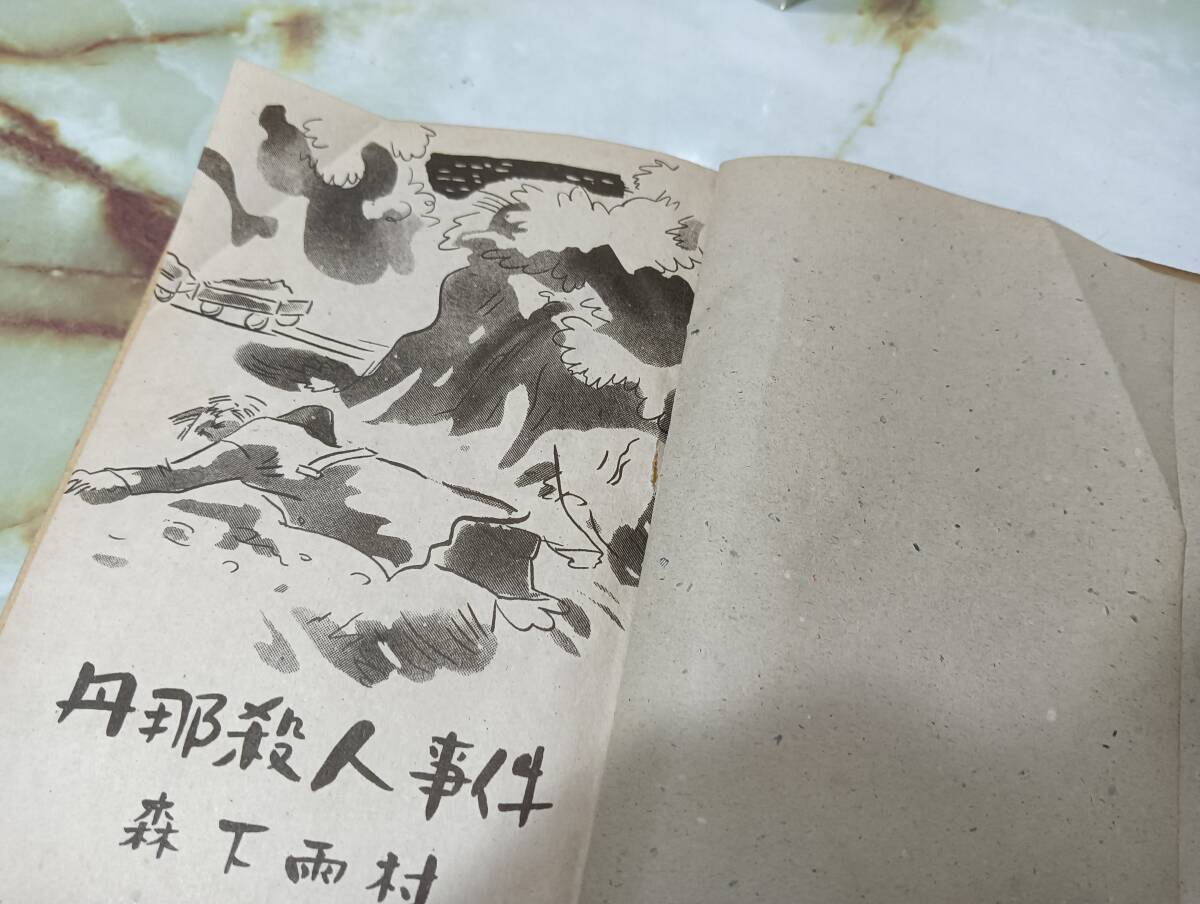 丹那殺人事件
森下雨村